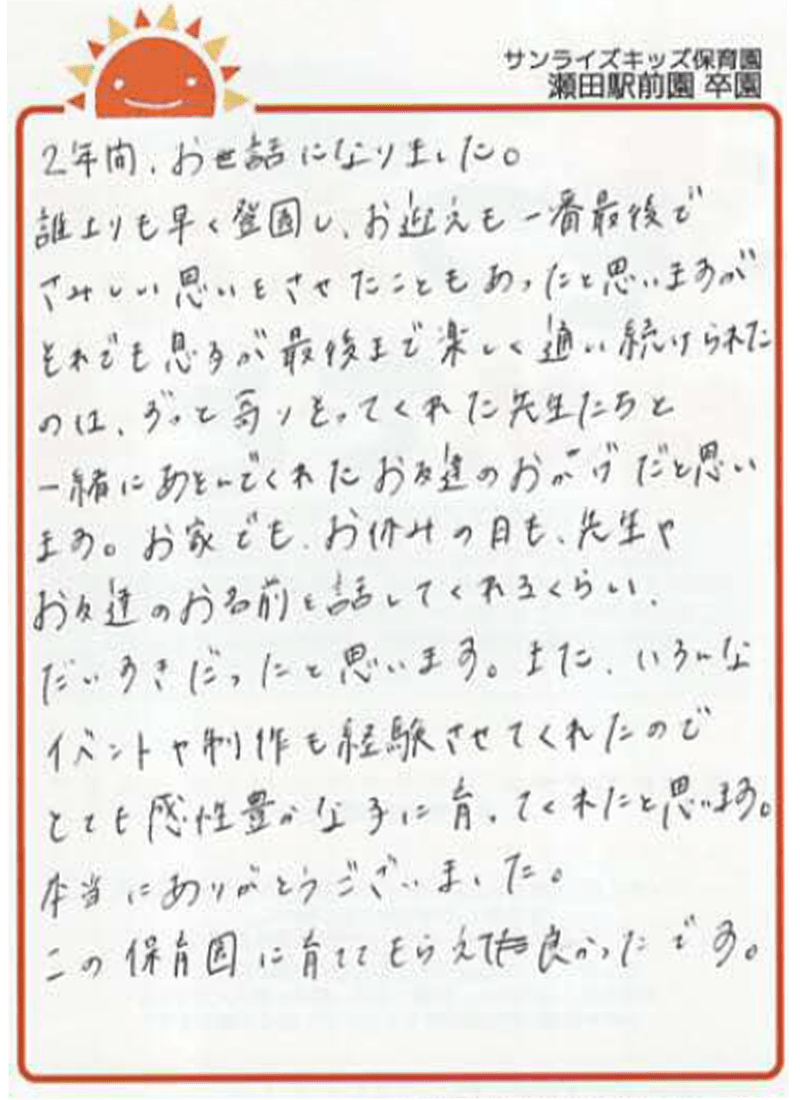 サンライズキッズ保育園
瀬田駅前園 卒園
2年間、お世話になりました。
誰よりも早く登園し、お迎えも一番最後で
さみしい思いをさせたこともあったと思いますが
それでも息子が最後まで楽しく通い続けられた
のは、ずっと寄りそってくれた先生たちと
一緒にあそんでくれたお友達のおかげだと思い
ます。お家でも、お休みの日も、先生や
お友達のお名前を話してくれるくらい、
だいすきだったと思います。また、いろんな
イベントや制作も経験させてくれたので
とても感性豊かな子に育ってくれたと思います。
本当にありがとうございました。
この保育園に育ててもらえて良かったです。